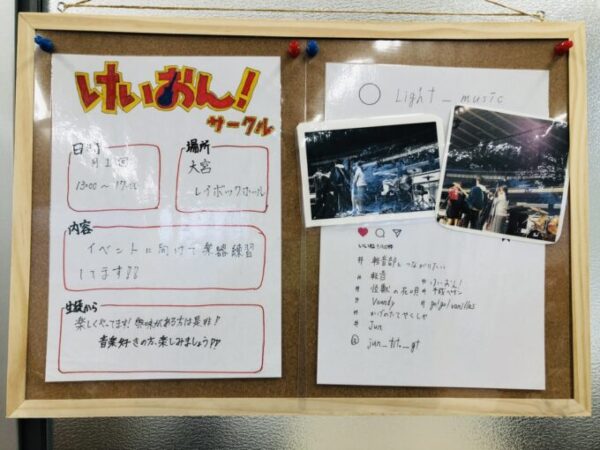 けいおん!
サークル
日時
月1回
13:00〜17:00
場所
大宮
レイボックホール
内容
イベントに向けて楽器練習
してます♪♪
生徒から
楽しくやってます!興味がある方は是非!
音楽好きの方、楽しみましょう♪♪
Light _ music
# 軽音部とつながりたい
# 軽音 # けいおん!
# 怪獣の花唄 # 平成ペザン
# Vaundy # go!go!vanillas
# かげのたてやくしゃ
# Jun
@ jun_